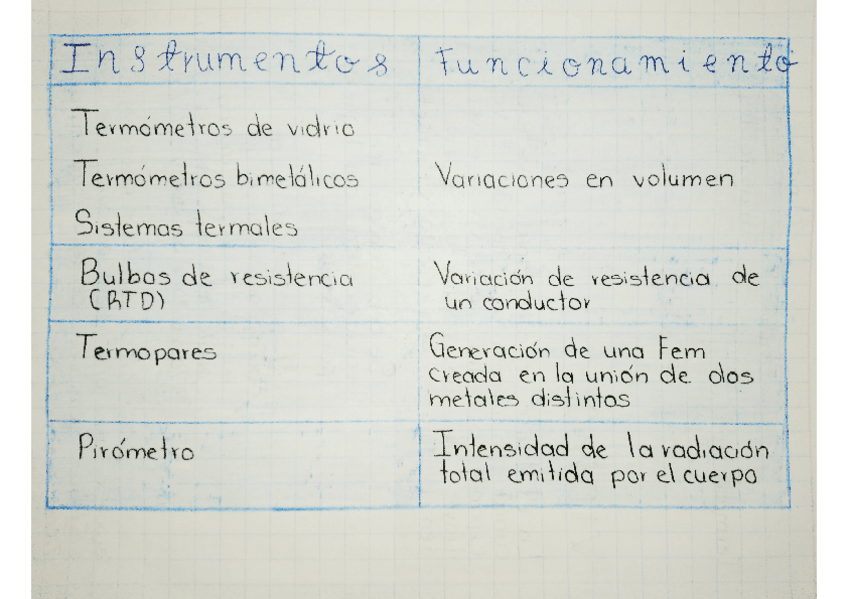 Instrumentos
Funcionamiento
Termómetros de vidrio
Termómetros bimetálicos
Sistemas termales
Variaciones en volumen
Bulbos de resistencia
(RTD)
Variación de resistencia de
un conductor
Termopares
Generación de una Fem
creada en la unión de dos
metales distintos
Pirómetro
Intensidad de la radiación
total emitida por el cuerpo